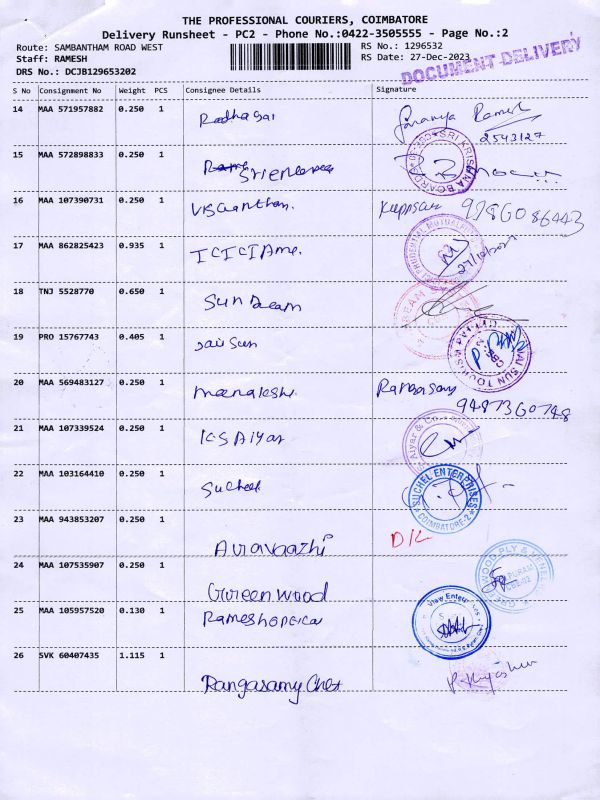 THE PROFESSIONAL COURIERS, COIMBATORE
Delivery Runsheet - PC2 - Phone No.:0422-3505555 - Page No.:2
Route: SAMBANTHAM ROAD WEST
RS No.: 1296532
Staff: RAMESH
RS Date: 27-Dec-2023
DOCUMENT DELIVERY
DRS No.: DCJB129653202
S No Consignment No Weight PCS Consignee Details Signature
14 MAA 571957882 0.250 1 Radhasai Saranya Ramesh
2543127
15 MAA 572898833 0.250 1
SRI KRISHNA
16 MAA 107390731 0.250 1 Viswanthan. Kuppsau 9786086443
17 MAA 862825423 0.935 1 ICICI Ame.
PRUDENTIAL MUTUAL
18 TNJ 5528770 0.650 1 Sun Beam
19 PRO 15767743 0.405 1 Jai Sun
JAI SUN TOURISM
20 MAA 569483127 0.250 1 Meenakshi
9487360748
21 MAA 107339524 0.250 1 KS Aiyar
Aiyar & Co.
22 MAA 103164410 0.250 1 Suchel
SUCHEL ENTERPRISES
COIMBATORE-2
23 MAA 943853207 0.250 1 D/L
24 MAA 107535907 0.250 1 Green wood
GREENWOOD PLY & VENEER
25 MAA 105957520 0.130 1
View Enterprises
26 SVK 60407435 1.115 1 Rangasamy Chet